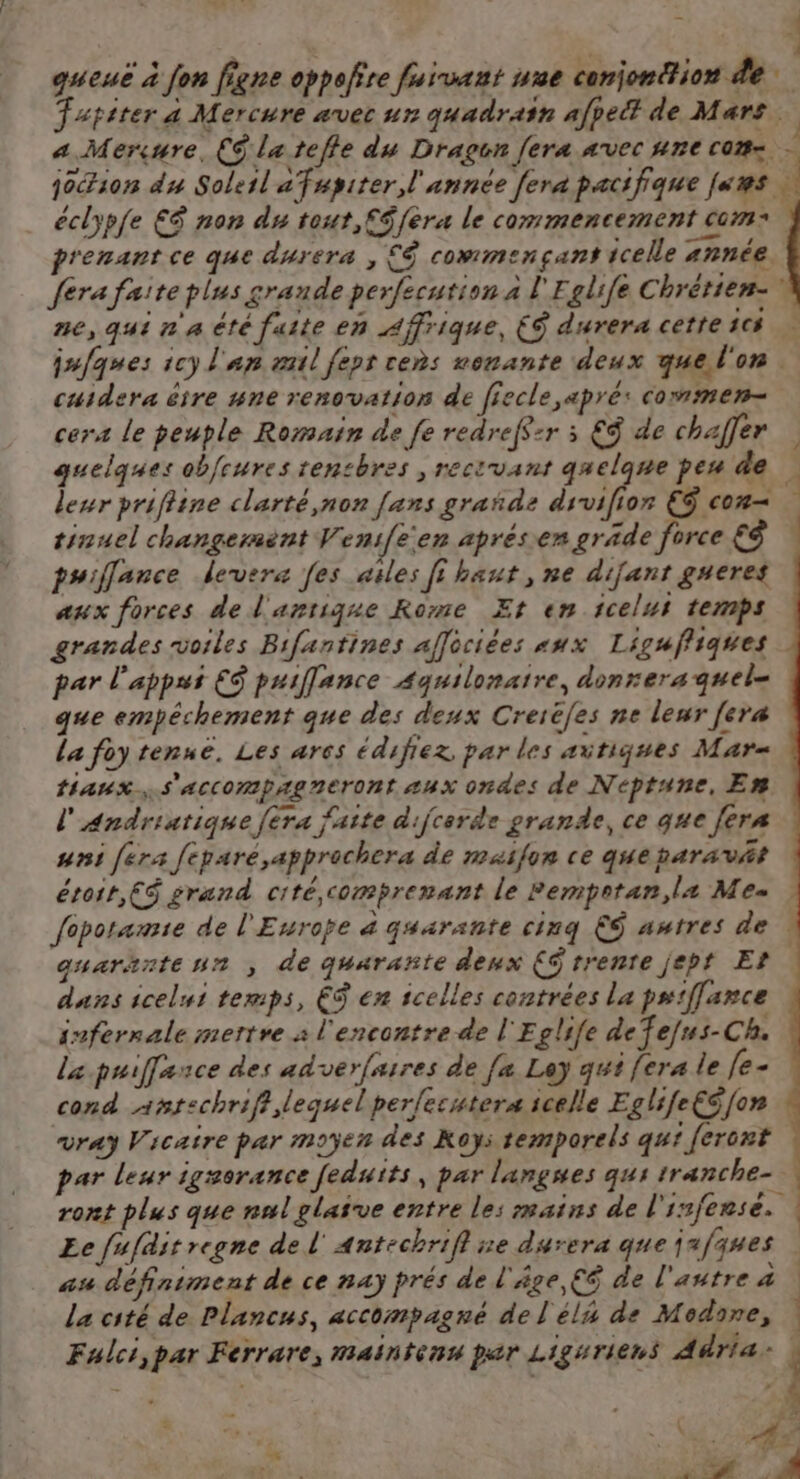 queuë à ſon ſigne oppoſite ſuivant une conjonction de
Jupiter à Mercure avec un quadrain aſpect de Mars
à Mercure, & la teſte du Dragon ſera avec une con-
jöction du Soleil à Jupiter, l'année ſera pacifique ſans
éclypſe & non du tout, & ſera le commencement com-
prenant ce que durera, & commençant icelle année
ſera faite plus grande perſecution à l'Egliſe Chrétien-
ne, qui n'a été faite en Affrique, & durera cette ici
juſques icy l'an mil ſept cens nonante deux que l'on
cuidera être une renovation de ſiecle, aprés commen-
cera le peuple Romain de ſe redreſſer ; & de chaſſer
quelques obſcures tenebres, recevant quelque peu de
leur priſtine clarté, non ſans grande diviſion & con-
tinuel changement Veniſe en aprés en grãde force &
puiſſance levera ſes ailes ſi haut, ne diſant gueres
aux forces de l'antique Rome Et en icelui temps
grandes voiles Biſantines aſſociées aux Liguſtiques
par l'appui & puiſſance Aquilonaire, donnera quel-
que empéchement que des deux Creteſes ne leur ſera
la foy tenuë. Les arcs édifiez par les antiques Mar-
tiaux, s'accompagneront aux ondes de Neptune, En
l'Andriatique ſera faite diſcorde grande, ce que ſera
uni ſera ſeparé, approchera de maiſon ce que paravãt
étoit, & grand cité, comprenant le Pempotan, la Me-
ſopotamie de l'Europe à quarante cinq & autres de
quarante un, de quarante deux & trente ſept Et
dans icelui temps, & en icelles contrées la puiſſance
infernale mettre à l'encontre de l'Egliſe de Jeſus-Ch.
la puiſſance des adverſaires de ſa Loy qui ſera le ſe-
cond Antechriſt, lequel perſecutera icelle Egliſe & ſon
vray Vicaire par moyen des Roys temporels qui ſeront
par leur ignorance ſeduits, par langues qui tranche-
ront plus que nul glaive entre les mains de l'inſensé.
Le ſuſdit regne de l'Antechriſt ne durera que juſques
au définiment de ce nay prés de l'âge, & de l'autre à
la cité de Plancus, accompagné de l'élû de Modone,
Fulci, par Ferrare, maintenu par Liguriens Adria-